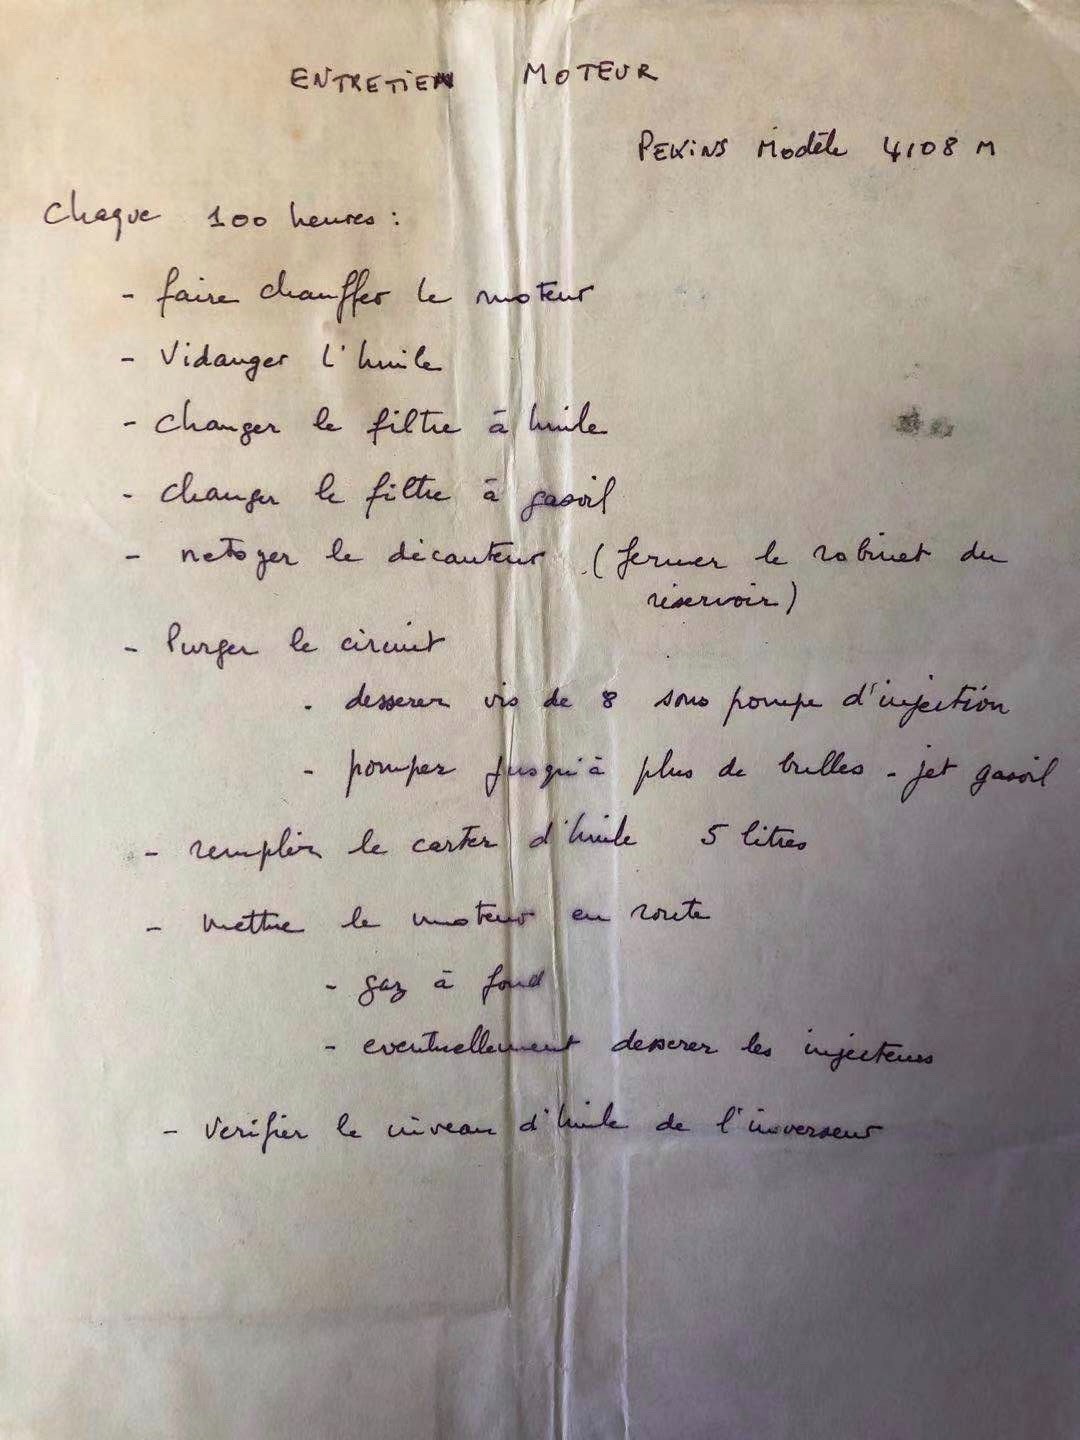 ENTRETIEN MOTEUR
PEKINS Modèle 4108 M
Chaque 100 heures :
- faire chauffer le moteur
- Vidanger l'huile
- Changer le filtre à huile
- Changer le filtre à gasoil
- netoyer le décanteur (fermer le robinet du
réservoir)
- Purger le circuit
- desserer vis de 8 sous pompe d'injection
- pomper jusqu'à plus de bulles - jet gasoil
- remplir le carter d'huile 5 litres
- mettre le moteur en route
- gaz à fond
- eventuellement desserer les injecteurs
- Verifier le niveau d'huile de l'inverseur